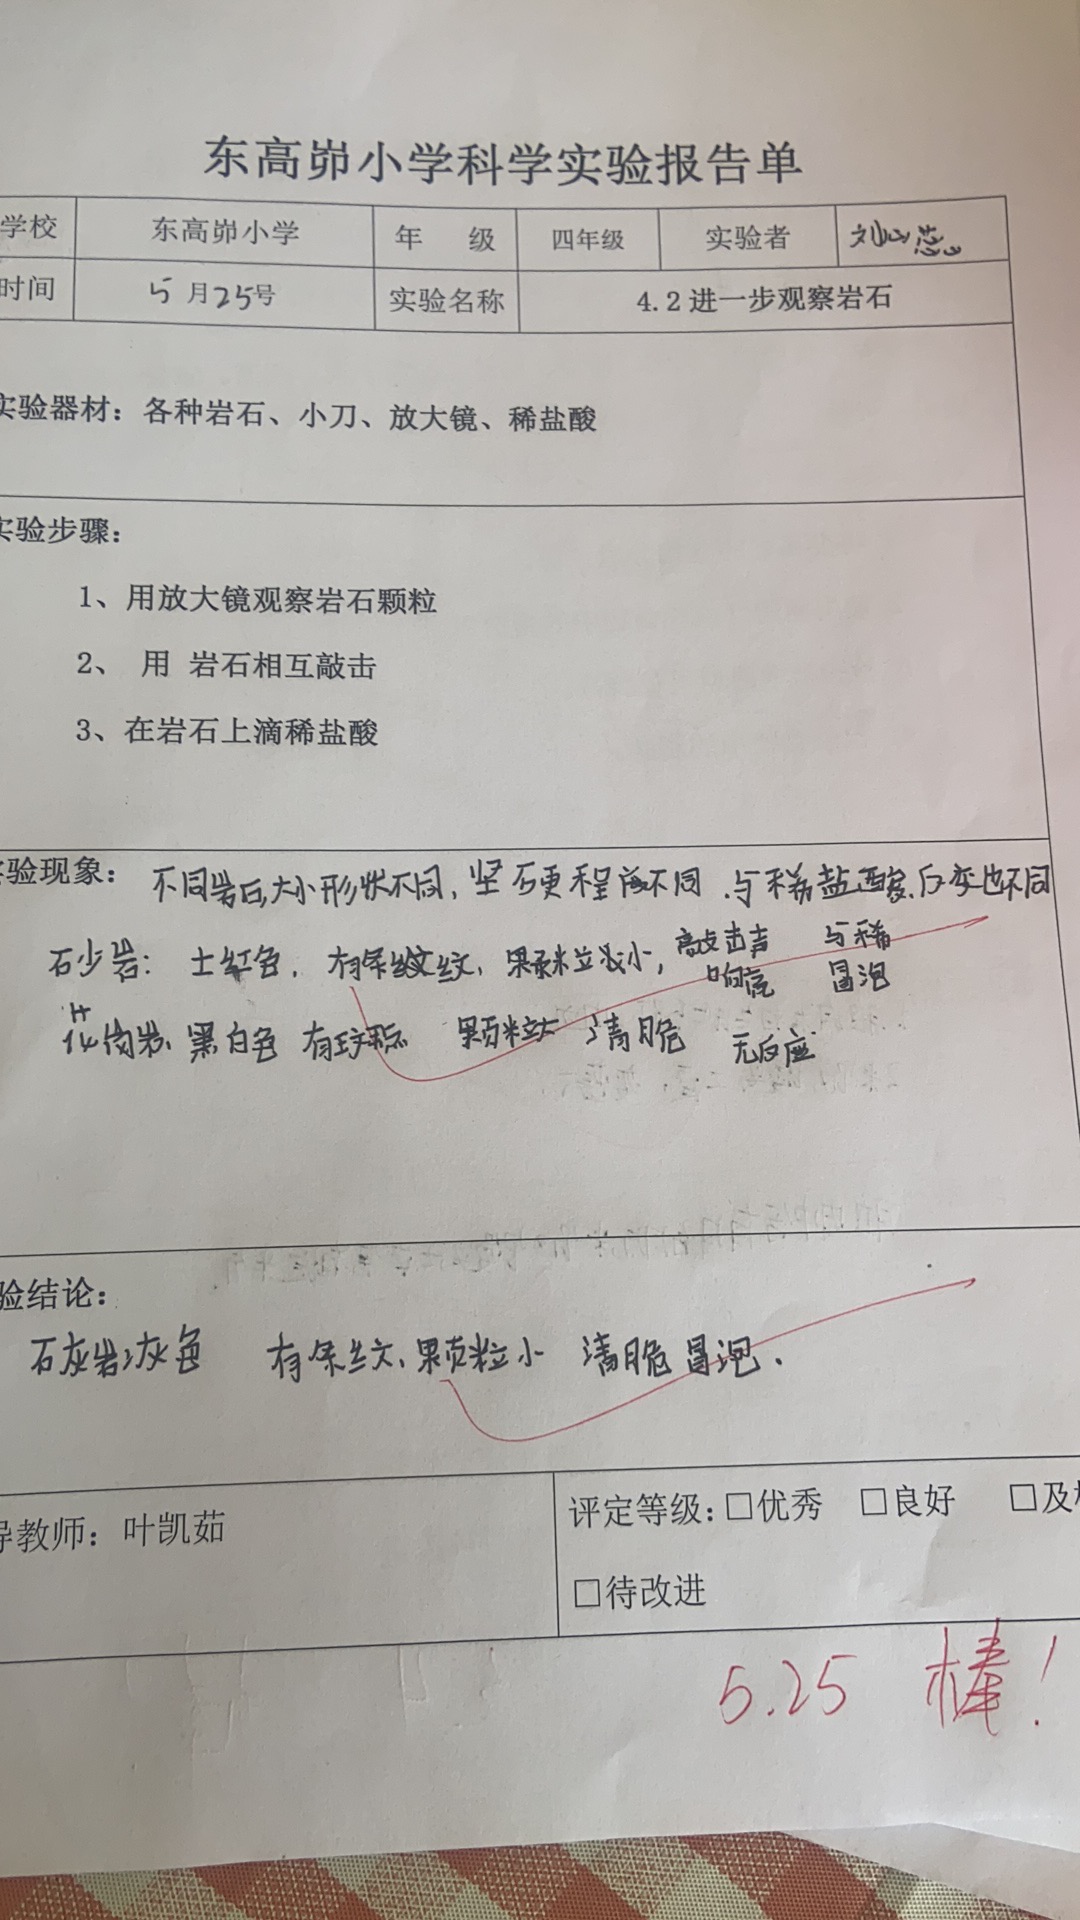 东高峁小学科学实验报告单
学校 东高峁小学 年 级 四年级 实验者
时间 5月25号 实验名称 4.2进一步观察岩石
实验器材：各种岩石、小刀、放大镜、稀盐酸
实验步骤：
1、用放大镜观察岩石颗粒
2、 用 岩石相互敲击
3、在岩石上滴稀盐酸
验现象： 不同岩石大小形状不同，坚硬程度不同、与稀盐酸反应也不同
石少岩：土红色，有条纹纹、颗粒较小，敲击声 与稀
响亮 冒泡
花岗岩、黑白色 有 颗粒大 清脆 无反应
验结论：
石灰岩：灰色 有条纹、颗粒小 清脆 冒泡．
导教师：叶凯茹 评定等级：□优秀 □良好 □及
□待改进
5.25 棒！